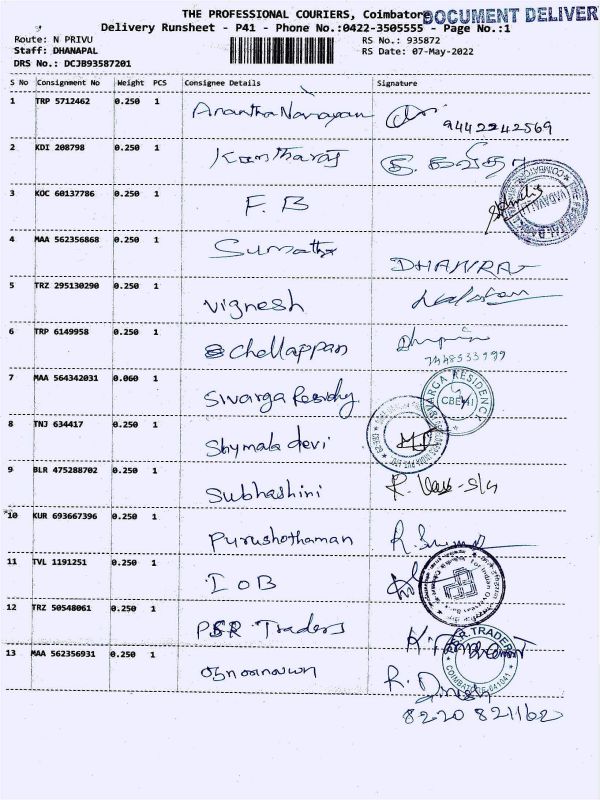 THE PROFESSIONAL COURIERS, Coimbatore
DOCUMENT DELIVER
Delivery Runsheet - P41 - Phone No.:0422-3505555 - Page No.:1
Route: N PRIVU
RS No.: 935872
Staff: DHANAPAL
RS Date: 07-May-2022
DRS No.: DCJB93587201
S No Consignment No Weight PCS Consignee Details Signature
1 TRP 5712462 0.250 1 Anantha Narayan
9442242569
2 KDI 208798 0.250 1 Kantharaj
3 KOC 60137786 0.250 1 F.B
4 MAA 562356868 0.250 1 Sumathi DHANRAJ
5 TRZ 295130290 0.250 1 Vignesh
6 TRP 6149958 0.250 1 Chellappan
7 MAA 564342031 0.060 1 Sivarga Residy
SIVARGA RESIDENCY
8 TNJ 634417 0.250 1 Shymala devi
9 BLR 475288702 0.250 1 Subhashini
10 KUR 693667396 0.250 1 Purushothaman
11 TVL 1191251 0.250 1 IOB
For Indian Overseas Bank
12 TRZ 50548061 0.250 1 PSR Traders
S.R. TRADERS
COIMBATORE 641041
13 MAA 562356931 0.250 1 R. Dinesh
8220 821162